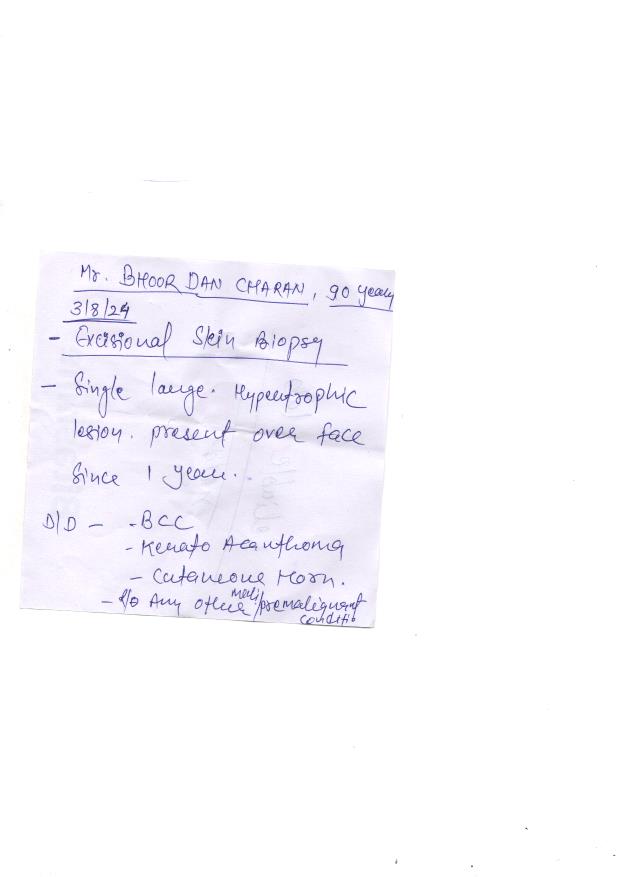 Mr. BHOOR DAN CHARAN, 90 years
3/8/24
- Excisional Skin Biopsy
- Single large. Hypertrophic
lesion. present over face
Since 1 year.
D/D - - BCC
- Kerato Acanthoma
- Cutaneous Horn.
- r/o Any other mali/premalignant
conditio